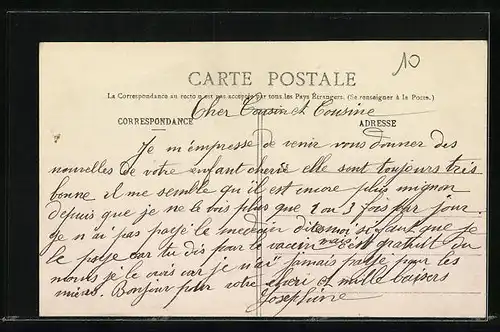 10
CARTE POSTALE
La Correspondance au recto n'est pas acceptée par tous les Pays Étrangers. (Se renseigner à la Poste.)
Cher Cousin et Cousine
CORRESPONDANCE ADRESSE
Je m'empresse de venir vous donner des
nouvelles de votre enfant cherie elle sont toujours tris
bonne il me semble qu'il est encore plus mignon
depuis que je ne le vois plus que 2 ou 3 fois par jour.
Je n'ai pas payé le medecin dites moi si faut que je
le paye car tu dis pour le vaccin mais est gratuit du
moins je le crois car je n'ai jamais payé pour les
miens. Bonjour pour votre cheri et mille baisers
Josephine